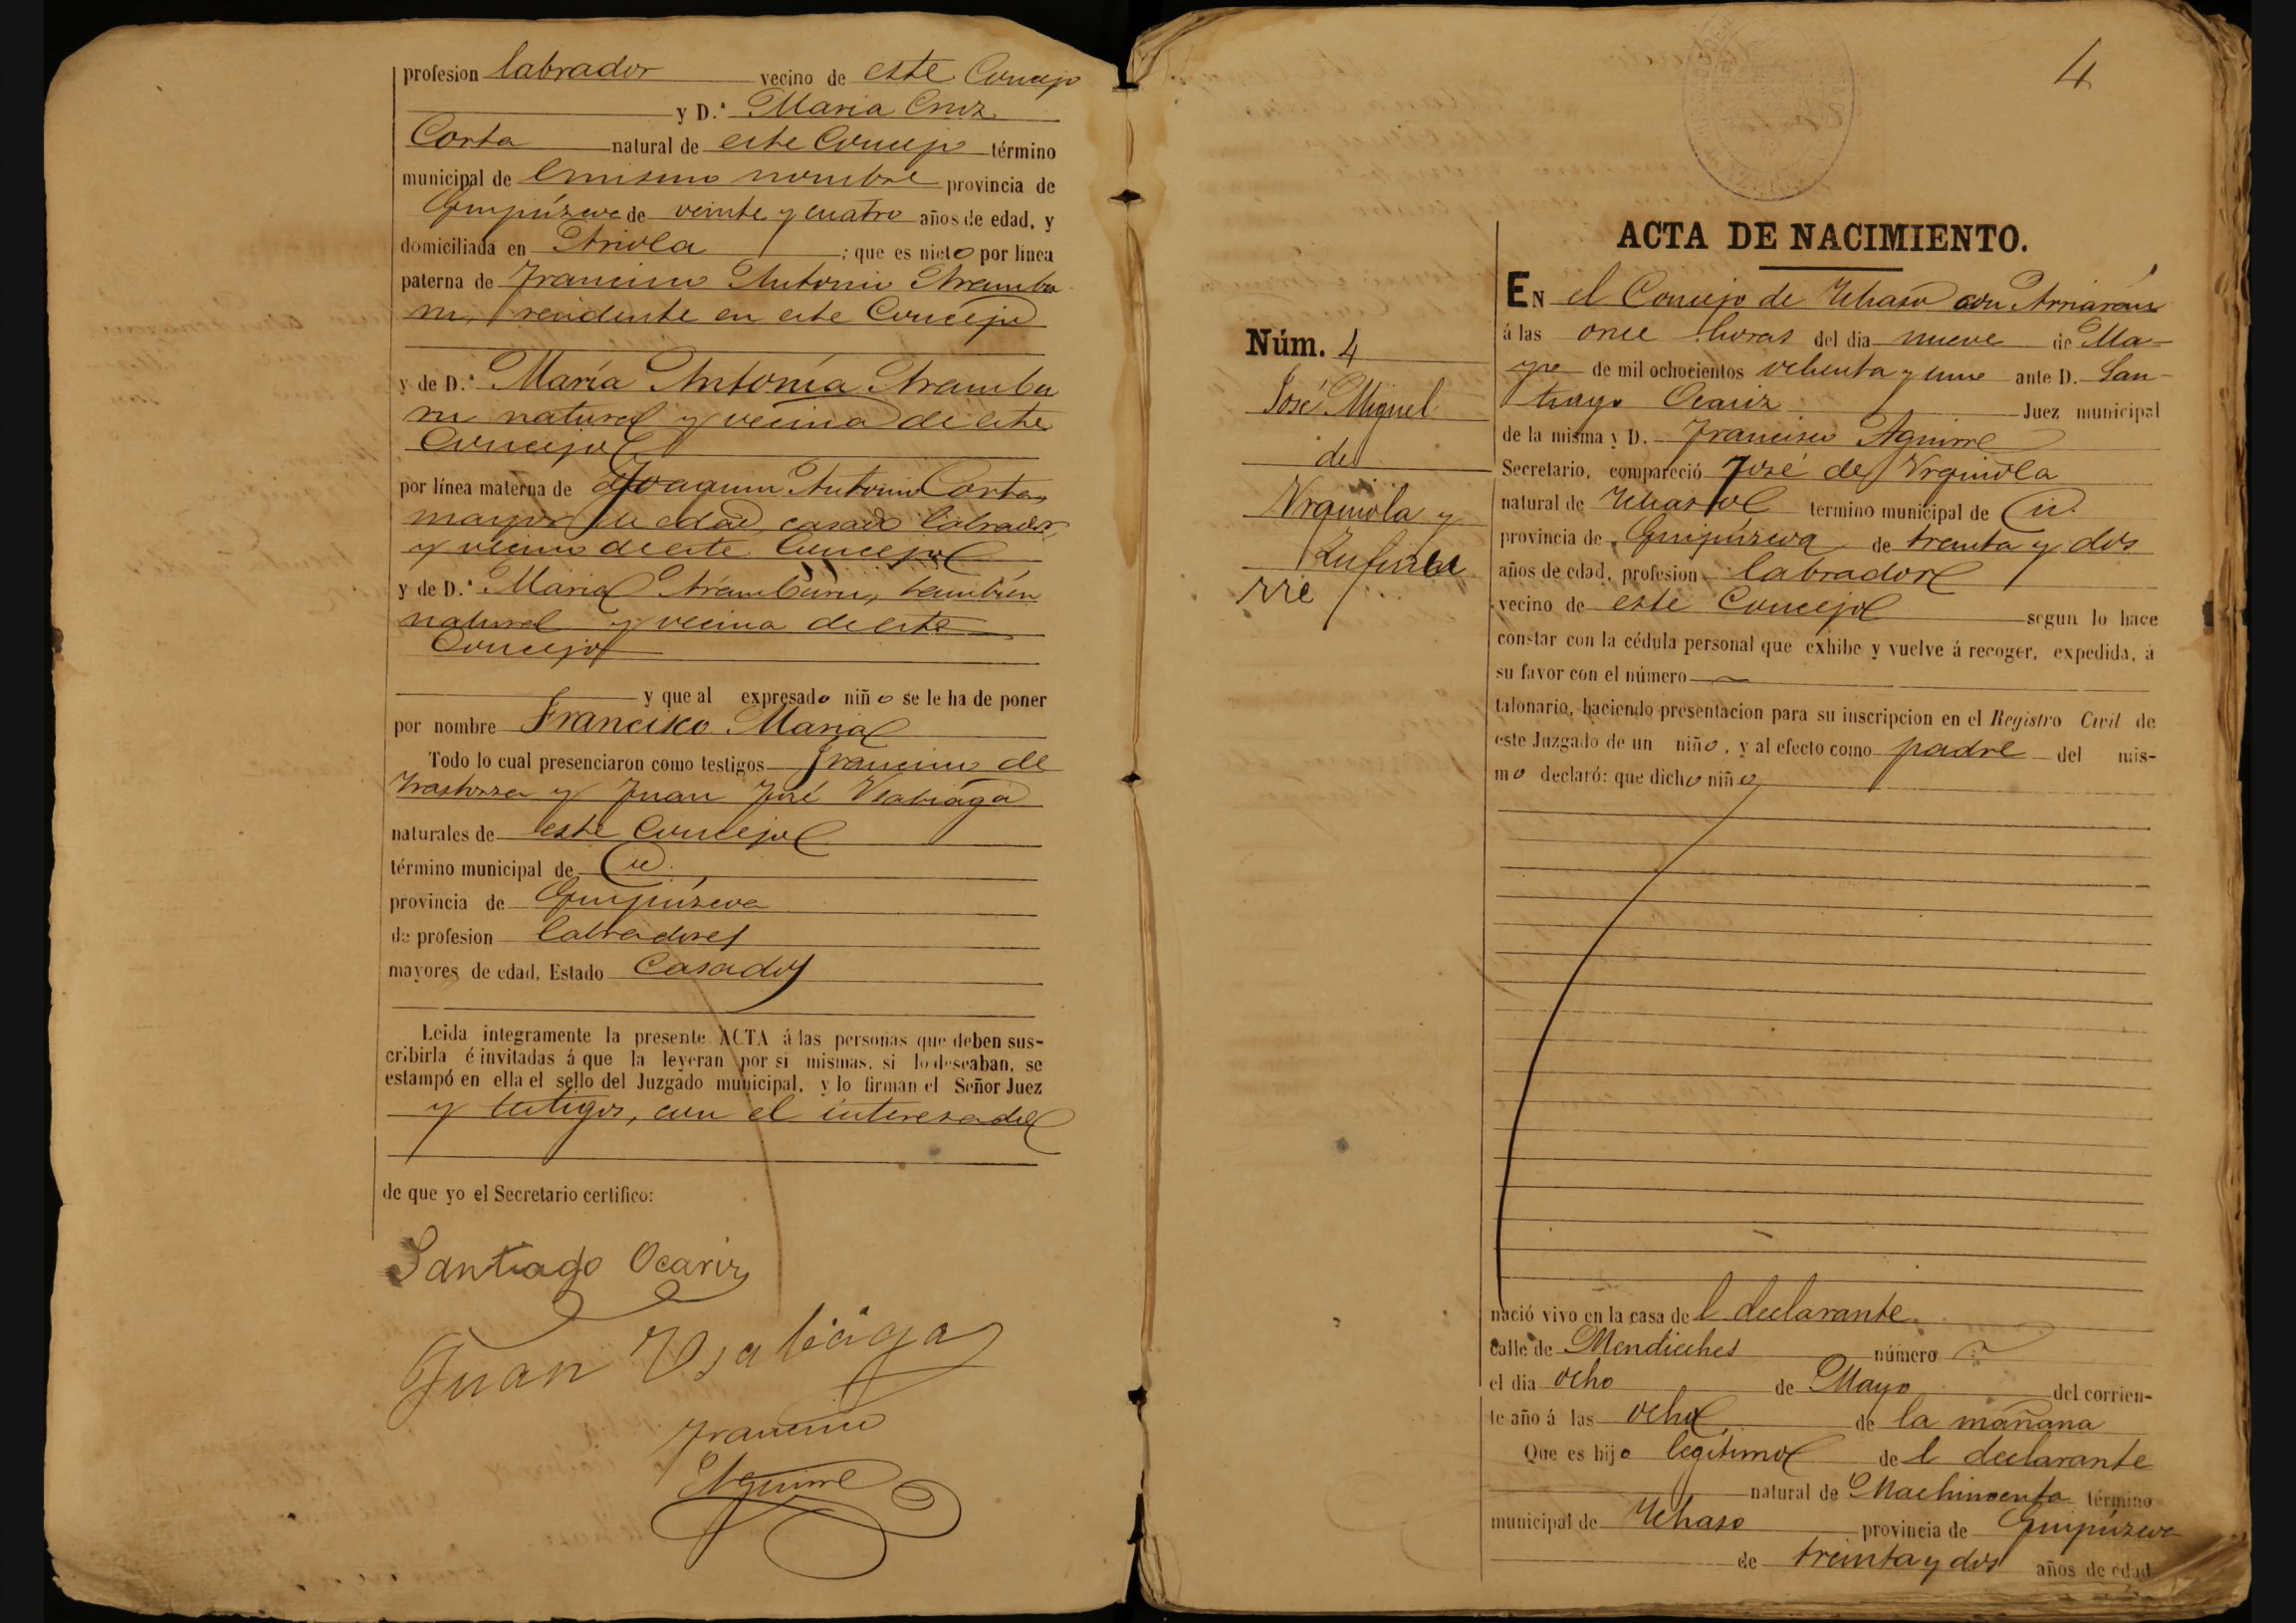 profesion labrador vecino de este Concejo
y D.ª Maria Cruz
Corta natural de este Concejo término
municipal de l mismo nombre provincia de
Guipúzcoa de veinte y cuatro años de edad, y
domiciliada en Ariola ; que es nieto por línea
paterna de Francisco Antonio Arambu
ru, residente en este Concejo
y de D.ª María Antonia Arambu
ru natural y vecina de este
Concejo
por línea materna de Joaquin Antonio Corta,
mayor de edad, casado labrador,
y vecino de este Concejo
y de D.ª Maria Aramburu, también
natural y vecina de este
Concejo
y que al expresado niño se le ha de poner
por nombre Francisco Maria
Todo lo cual presenciaron como testigos Francisco de
y Juan José Usabiaga
naturales de este Concejo
término municipal de id.
provincia de Guipúzcoa
de profesion labradores
mayores de edad, Estado Casados
Leida integramente la presente ACTA á las personas que deben sus-
cribirla é invitadas á que la leyeran por si mismas, si lo deseaban, se
estampó en ella el sello del Juzgado municipal, y lo firman el Señor Juez
y testigos, con el interesado
de que yo el Secretario certifico:
Santiago Ocariz
Juan Usabiaga
Francisco
Aguirre
4
ACTA DE NACIMIENTO.
Núm. 4
José Miguel
de
Urquiola y
EN el Concejo de Ichaso con Arriarán
á las once horas del dia nueve de Ma-
yo de mil ochocientos ochenta y uno ante D. San-
tiago Ocariz Juez municipal
de la misma y D. Francisco Aguirre
Secretario, compareció José de Urquiola
natural de Ichaso termino municipal de id.
provincia de Guipúzcoa de treinta y dos
años de edad, profesion labrador
vecino de este Concejo segun lo hace
constar con la cédula personal que exhibe y vuelve á recoger, expedida, á
su favor con el número
talonario, haciendo presentacion para su inscripcion en el Registro Civil de
este Juzgado de un niño, y al efecto como padre del mis-
mo declaró: que dicho niño
nació vivo en la casa de l declarante
calle de Mendieches número
el dia ocho de Mayo del corrien-
te año á las ocho de la mañana
Que es hijo legítimo de l declarante
natural de Machinventa término
municipal de Ichaso provincia de Guipúzcoa
de treinta y dos años de edad